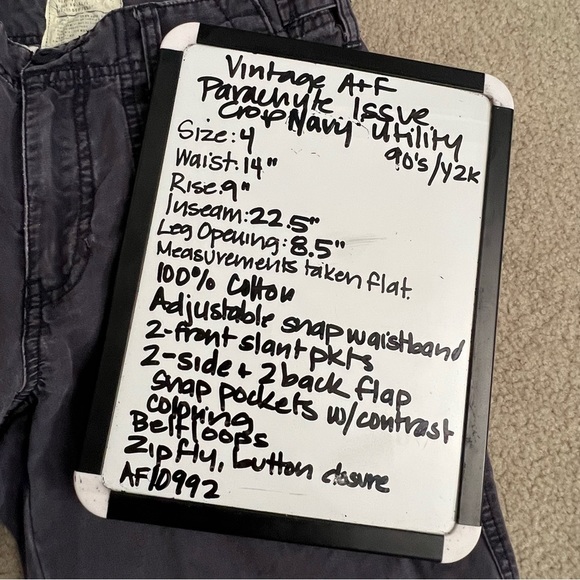 Vintage A+F
Parachyte Issue
Crop Navy Utility
90's/Y2K
Size: 4
Waist: 14"
Rise: 9"
Inseam: 22.5"
Leg Opening: 8.5"
Measurements taken flat.
100% Cotton
Adjustable snap waistband
2-front slant pkts
2-side + 2 back flap
snap pockets w/contrast
coloring
Belt loops
Zip fly, button closure
AF10992